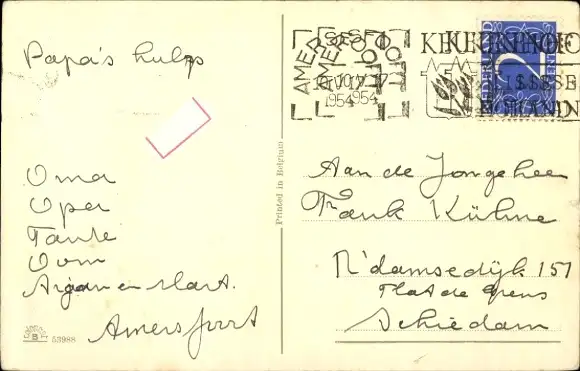 Papa's hulp
Oma
Opa
Tante
Oom
Arjan en Mart.
Amersfoort
53988
Printed in Belgium
AMERSFOORT
1954
NEDERLAND
2
Aan de Jongeheer
Frank Kühne
R'damsedijk 151
Flat de Grens
Schiedam